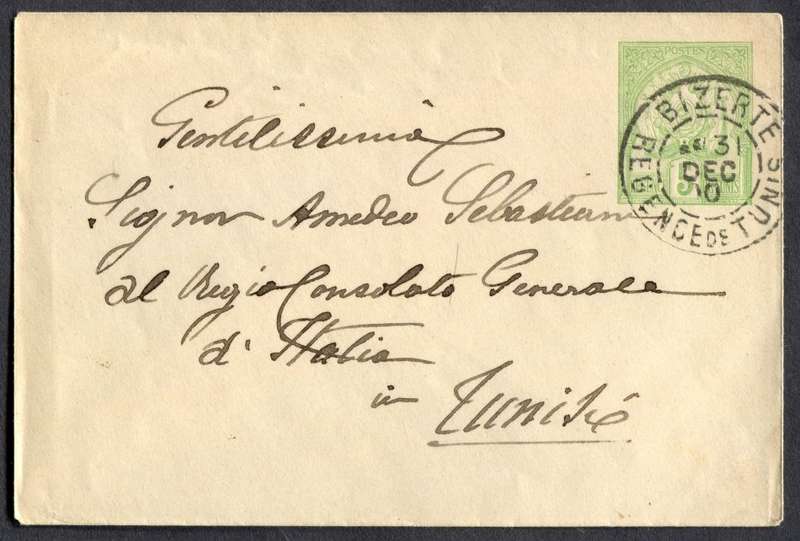 POSTES
BIZERTE
REGENCE DE TUNIS
31
DEC
10
5
Gentilissimo
Signor Amedeo Sebastiani
al Regio Consolato Generale
d'Italia
in Tunisi